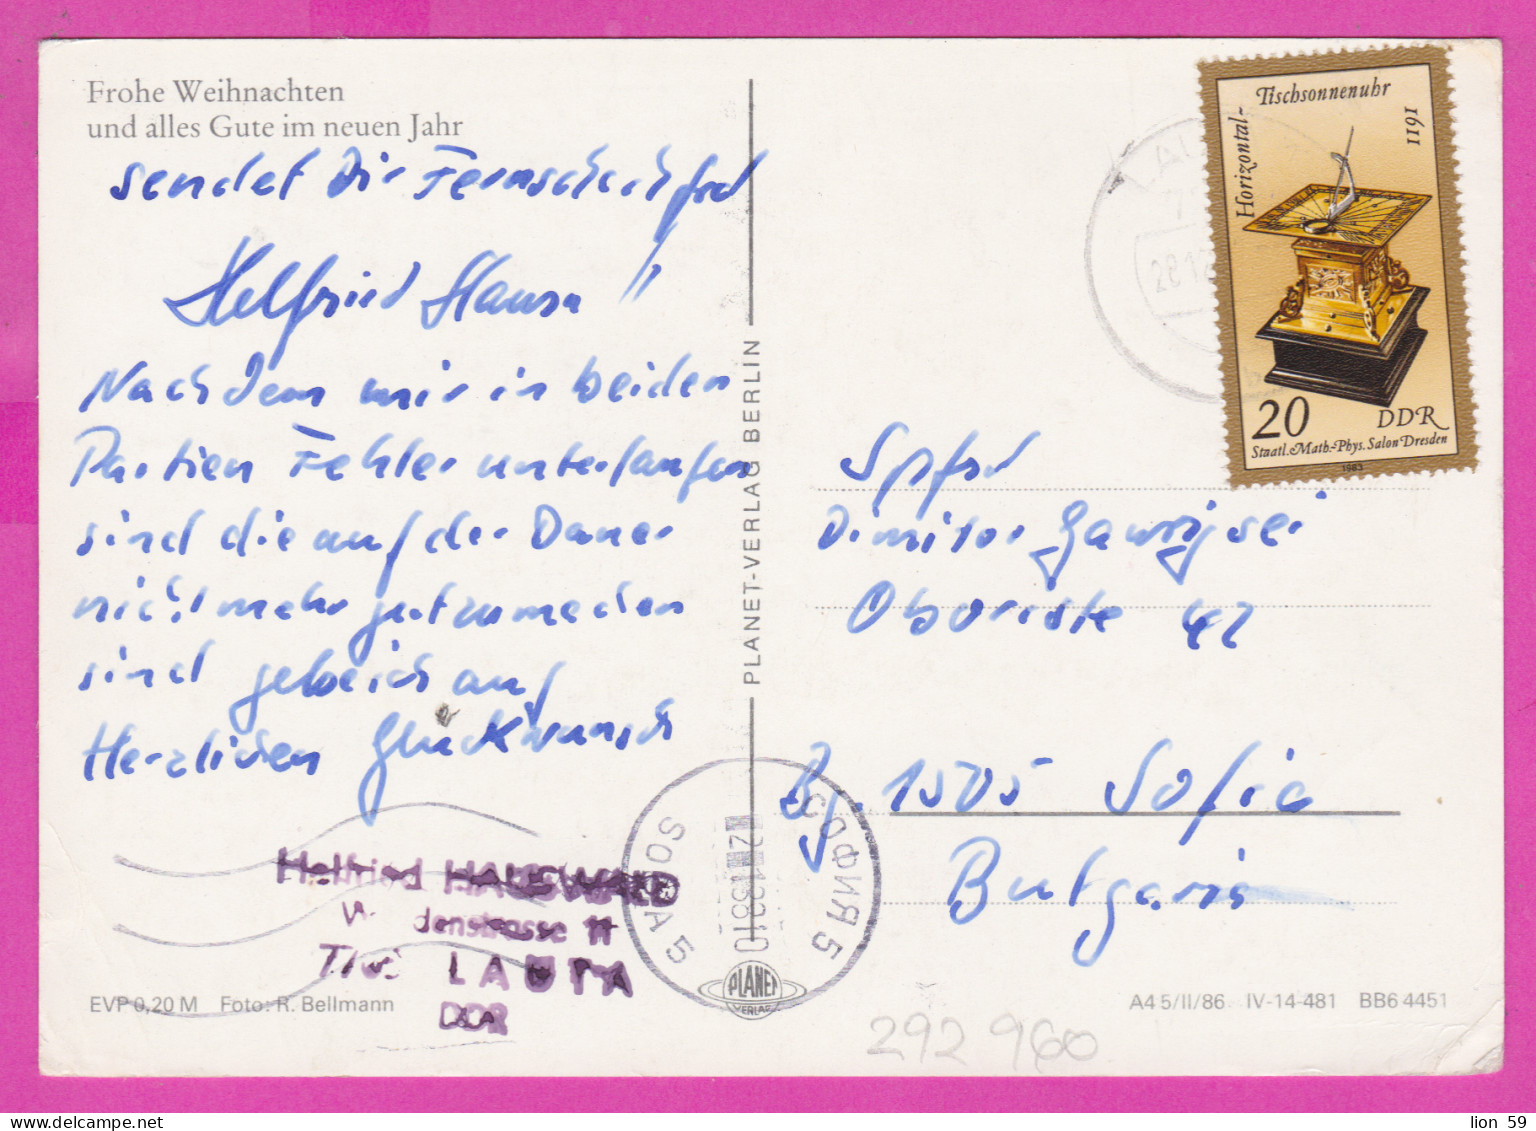 Frohe Weihnachten
und alles Gute im neuen Jahr
sendet Dir Fernschachfrd
Helfried Hausw
Nachdem mir in beiden
Partien Fehler unterlaufen
sind die auf der Dauer
nicht mehr gutzumachen
sind gebe ich auf
Herzlichen Glückwunsch
Helfried HAUSWALD
denstrasse 11
LAUTA
DDR
EVP 0,20 M Foto: R. Bellmann
PLANET-VERLAG BERLIN
PLANET
VERLAG
SOFIA 5
СОФИЯ 5
Horizontal-
Tischsonnenuhr
1611
20 DDR
Staatl. Math.-Phys. Salon Dresden
1983
Spfrd
Dimitor
Oboriste 42
Bg. 1505 Sofia
Bulgaria
A4 5/II/86 IV-14-481 BB6 4451
292 960
lion 59